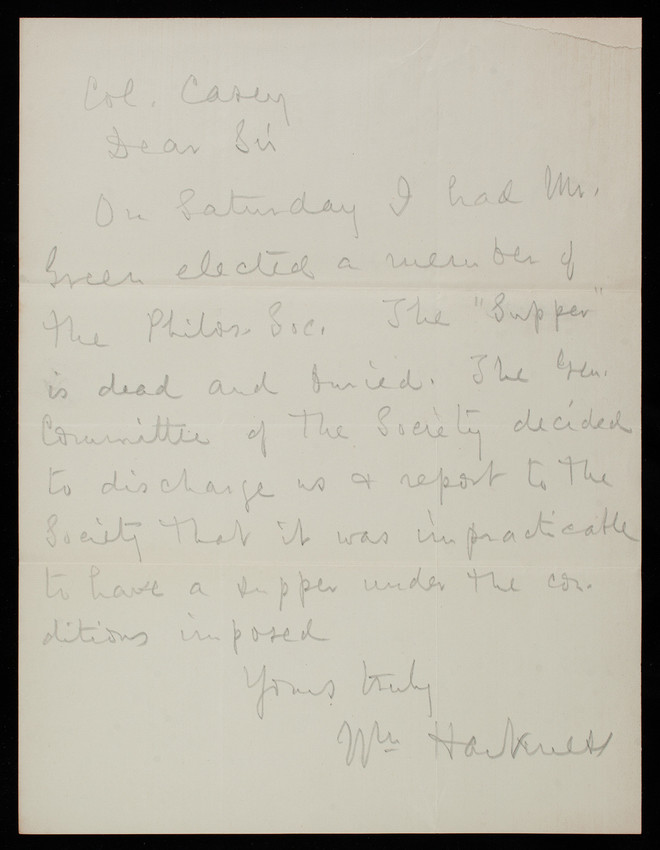 Col. Casey
Dear Sir
On Saturday I had Mr.
Green elected a member of
the Philos. Soc. The "Supper"
is dead and buried. The Gen.
Committee of the Society decided
to discharge us & report to the
Society that it was impracticable
to have a supper under the con-
ditions imposed
Yours truly
Wm Harkness